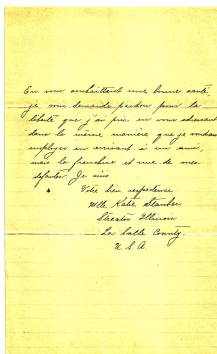 En vous souhaittant une bonne santé
je vous demande pardon pour la
liberté que j'ai pris en vous adressant
dans la même manière que je voudrais
employer en écrivant à un ami,
mais la franchise est une de mes
défauts. Je suis
Votre bien respectueuse
Mlle Katie Stauber
Streator Illinois
La Salle County.
U. S. A.